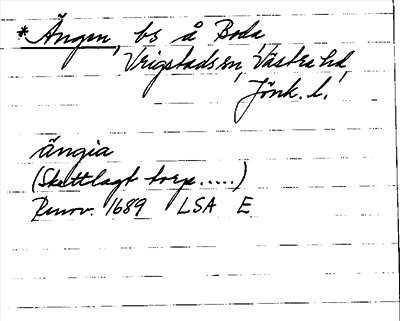 *Ängen, bs å Boda
Vrigstads sn, Västra hd,
Jönk. l.
ängia
(Skattlagt torp.....)
Renov. 1689 LSA E